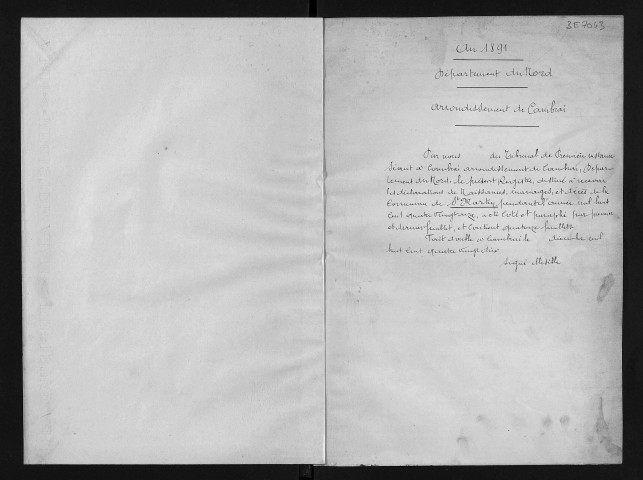 3E7043
An 1891
Département du Nord
Arrondissement de Cambrai
Par nous du Tribunal de Première instance
Séant à Cambrai arrondissement de Cambrai, Dépar-
tement du Nord, le présent Registre, destiné à recevoir
les déclarations de Naissances, mariages, et décès de la
Commune de St Martin pendant l'année mil huit
cent quatre vingt onze, a été coté et paraphé par premier
et dernier feuillet, et contient quatorze feuillets
Fait et à Cambrai le décembre mil
huit cent quatre vingt dix
Signé